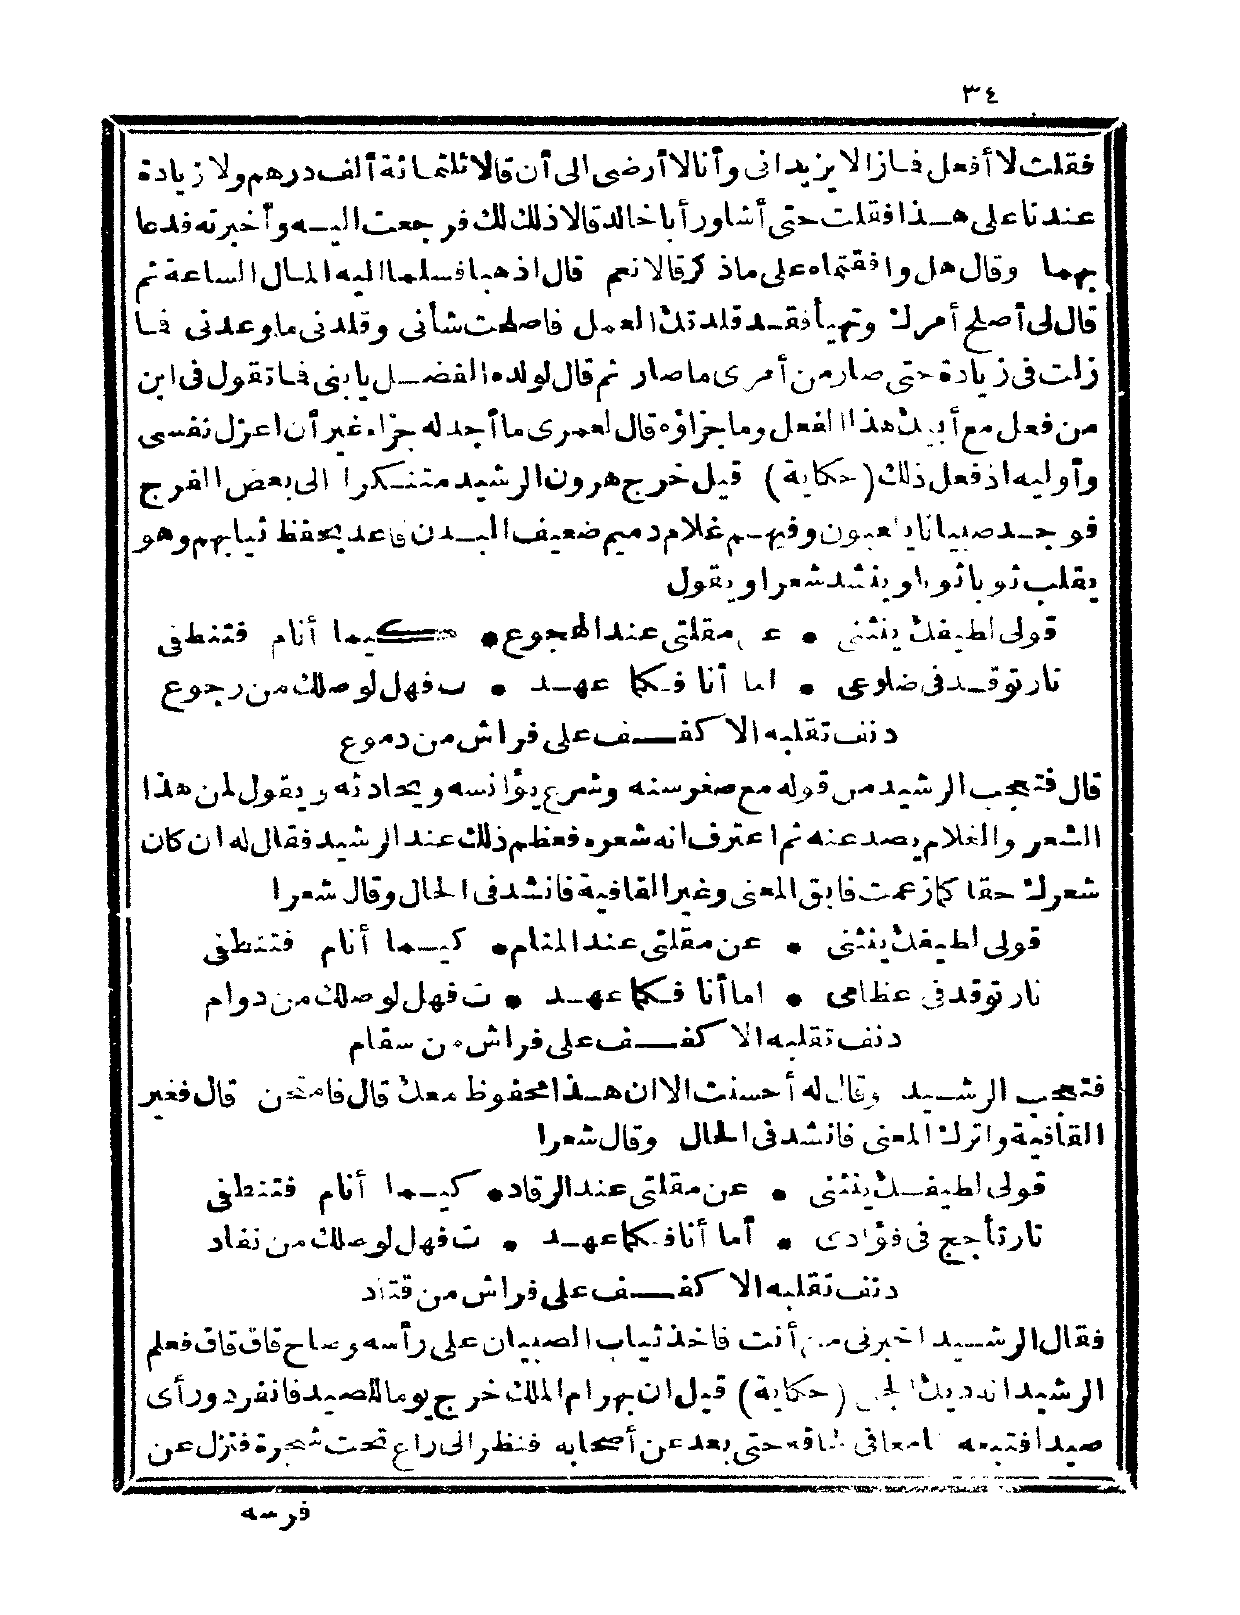 ٣٤
فقلت لا أفعل فما زالا يزيداني وأنا لا أرضى الى أن قالا ثلثمائة ألف درهم ولا زيادة
عندنا على هذا فقلت حتى أشاور أبا خالد قالا ذلك لك فرجعت اليه وأخبرته فدعا
بهما وقال هل وافقتماه على ما ذكر قالا نعم قال اذهبا فسلما اليه المال الساعة ثم
قال لى أصلح أمرك وتهيأ فقد قلدتك العمل فاصلحت شأنى وقلدنى ما وعدنى فما
زلت فى زيادة حتى صار من أمرى ما صار ثم قال لولده الفضل يا بنى فما تقول فى ابن
من فعل مع أبيك هذا الفعل وما جزاؤه قال لعمرى ما أجد له جزاء غير أن اعزل نفسى
وأوليه اذ فعل ذلك (حكاية) قيل خرج هرون الرشيد متنكرا الى بعض الفرج
فوجد صبيانا يلعبون وفيهم غلام دميم ضعيف البدن قاعد يحفظ ثيابهم وهو
يقلب ثوبا ثوبا وينشد شعرا ويقول
قولى لطيفك ينثنى • عن مقلتى عند الهجوع • كيما أنام فتنطفى
نار توقد فى ضلوعى • اما أنا فكما عهد • ت فهل لوصلك من رجوع
دنف تقلبه الاكفف على فراش من دموع
قال فتعجب الرشيد من قوله مع صغر سنه وشرع يؤانسه ويحادثه ويقول لمن هذا
الشعر والغلام يصد عنه ثم اعترف انه شعره فعظم ذلك عند الرشيد فقال له ان كان
شعرك حقا كما زعمت فابق المعنى وغير القافية فانشد فى الحال وقال شعرا
قولى لطيفك ينثنى • عن مقلتى عند المنام • كيما أنام فتنطفى
نار توقد فى عظامى • اما أنا فكما عهد • ت فهل لوصلك من دوام
دنف تقلبه الاكفف على فراش من سقام
فتعجب الرشيد وقال له أحسنت الا ان هذا محفوظ معك قال فامتحن قال فغير
القافية واترك المعنى فانشد فى الحال وقال شعرا
قولى لطيفك ينثنى • عن مقلتى عند الرقاد • كيما أنام فتنطفى
نار تأجج فى فؤادى • أما أنا فكما عهد • ت فهل لوصلك من نفاد
دنف تقلبه الاكفف على فراش من قتاد
فقال الرشيد اخبرنى من أنت فاخذ ثياب الصبيان على رأسه وصاح قاق قاق فعلم
الرشيد انه ديك الجن (حكاية) قيل ان بهرام الملك خرج يوما للصيد فانفرد ورأى
صيدا فتبعه طامعا فى لحاقه حتى بعد عن أصحابه فنظر الى راع تحت شجرة فنزل عن
فرسه